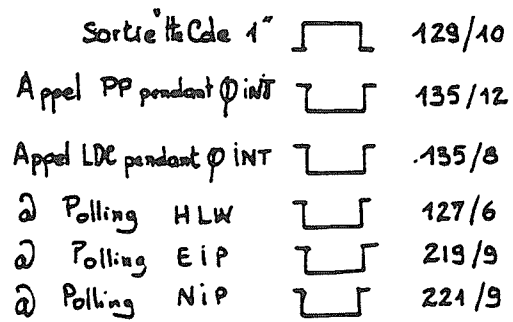 Sortie "Hte Cde 1" 129/10
Appel PP pendant φ iNT 135/12
Appel LDC pendant φ iNT .135/8
@ Polling HLW 127/6
@ Polling EiP 219/9
@ Polling NiP 221/9